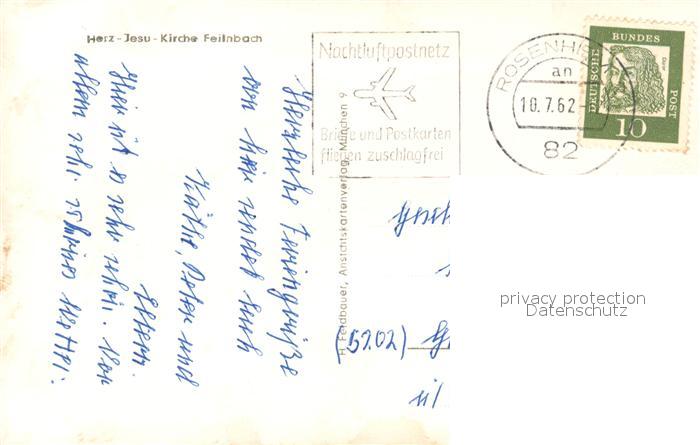 Herz-Jesu-Kirche Feilnbach
Nachtluftpostnetz
Briefe und Postkarten
fliegen zuschlagfrei
ROSENHEIM
an
10.7.62
82
DEUTSCHE BUNDESPOST
Dürer
10
H. Feldbauer, Ansichtskartenverlag, München 9
Herzliche Feriengrüße
von hier sendet Euch
Käthe, Peter und
Eltern.
Hier ist es sehr schön. Vor
allem sehr schönes Wetter.
(5202)
privacy protection
Datenschutz